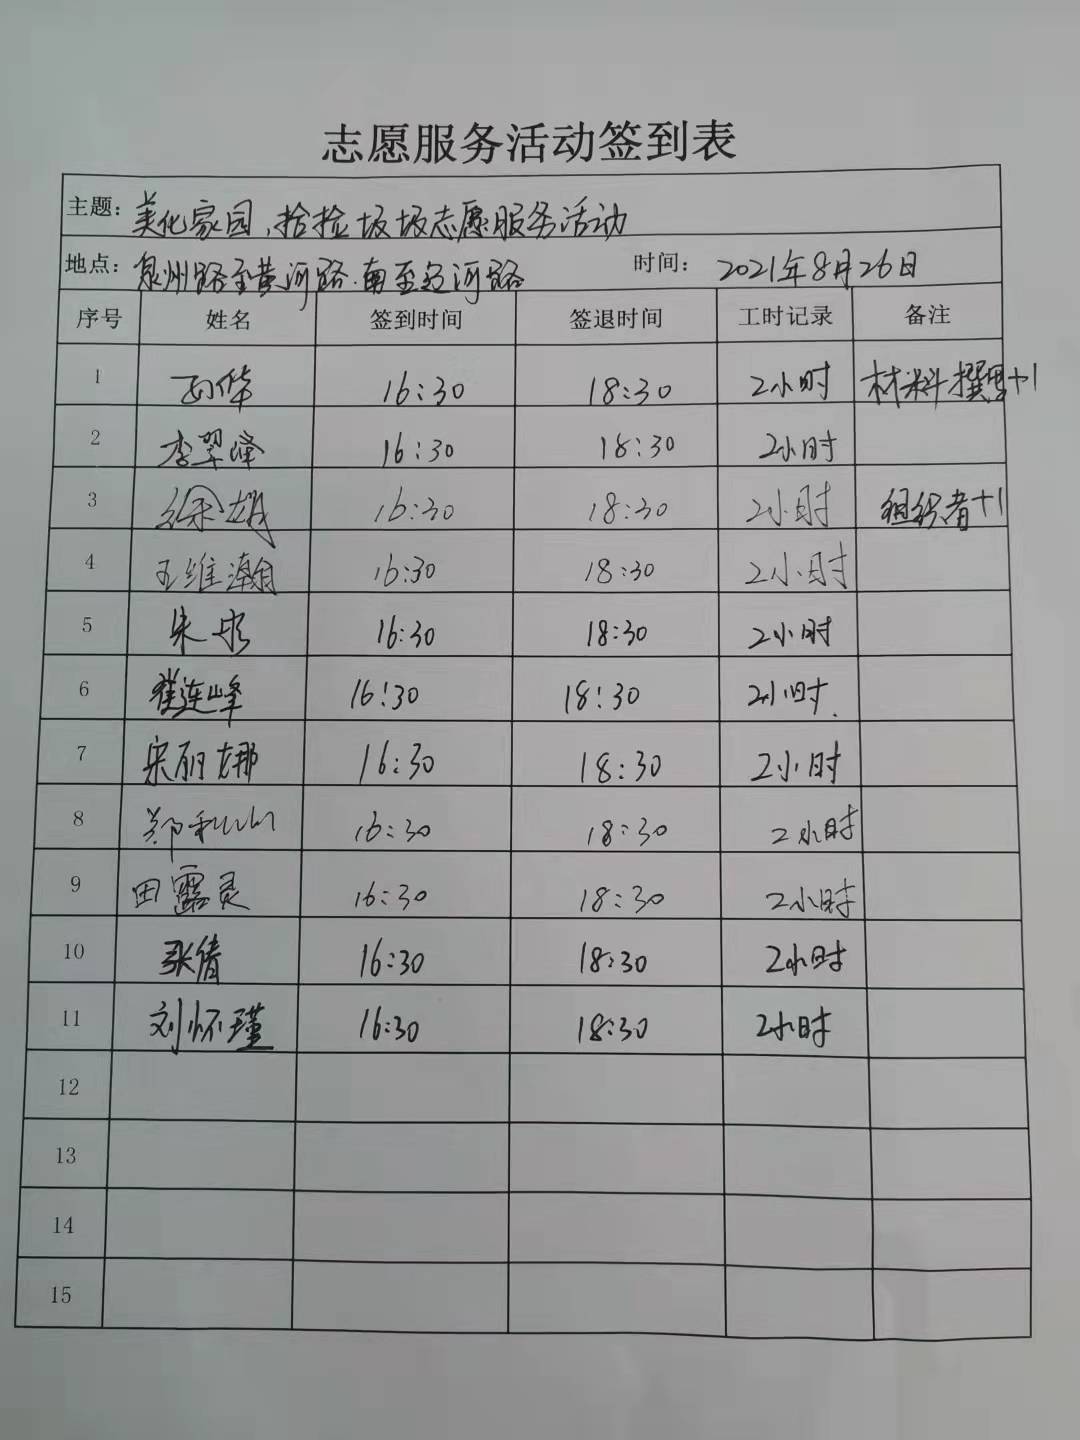 志愿服务活动签到表
主题：美化家园、拾捡垃圾志愿服务活动
地点：泉州路至黄河路.南至辽河路 时间： 2021年8月26日
序号 姓名 签到时间 签退时间 工时记录 备注
1 16:30 18:30 2小时 材料撰写+1
2 李翠峰 16:30 18:30 2小时
3 徐雄 16:30 18:30 2小时 组织者+1
4 王维瀚 16:30 18:30 2小时
5 朱彤 16:30 18:30 2小时
6 崔连峰 16:30 18:30 2小时.
7 宋丽娜 16:30 18:30 2小时
8 郑利 16:30 18:30 2小时
9 田露灵 16:30 18:30 2小时
10 张倩 16:30 18:30 2小时
11 刘怀瑾 16:30 18:30 2小时
12
13
14
15